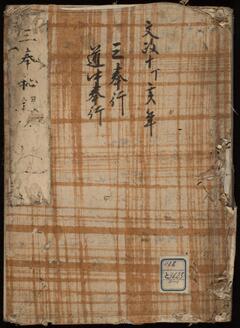 文政十丁亥年
三奉行
道中奉行
三奉秘